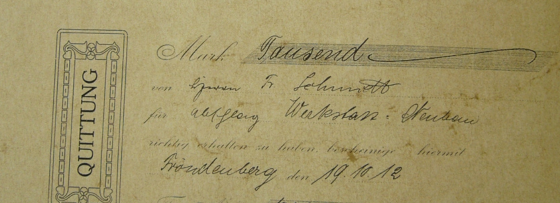 QUITTUNG
Mark Tausend
von Herrn Fr. Schmidt
für Werkstatt-Neubau
richtig erhalten zu haben, bescheinige hiermit
Fröndenberg den 19.10.12